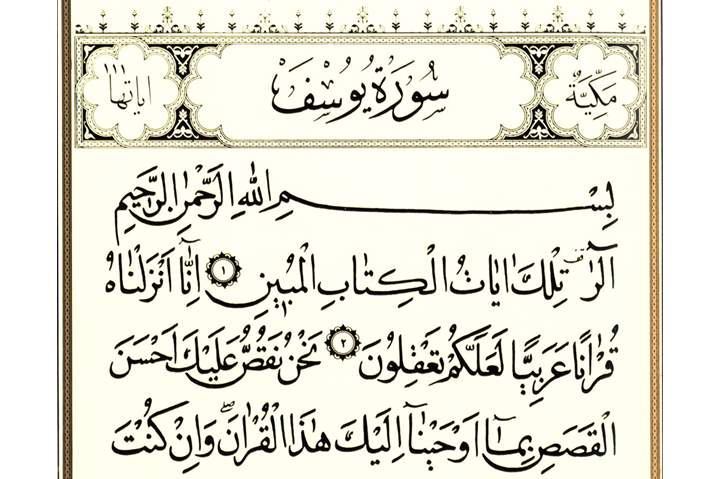 مَكِّيَّةٌ سُورَةُ يُوسُفَ اٰيَاتُهَا ١١١
بِسْمِ اللّٰهِ الرَّحْمٰنِ الرَّحِيمِ
الٓرٰ ۚ تِلْكَ اٰيَاتُ الْكِتَابِ الْمُبِينِ ﴿١﴾ اِنَّٓا اَنْزَلْنَاهُ
قُرْاٰنًا عَرَبِيًّا لَعَلَّكُمْ تَعْقِلُونَ ﴿٢﴾ نَحْنُ نَقُصُّ عَلَيْكَ اَحْسَنَ
الْقَصَصِ بِمَٓا اَوْحَيْنَٓا اِلَيْكَ هٰذَا الْقُرْاٰنَ ۗ وَاِنْ كُنْتَ